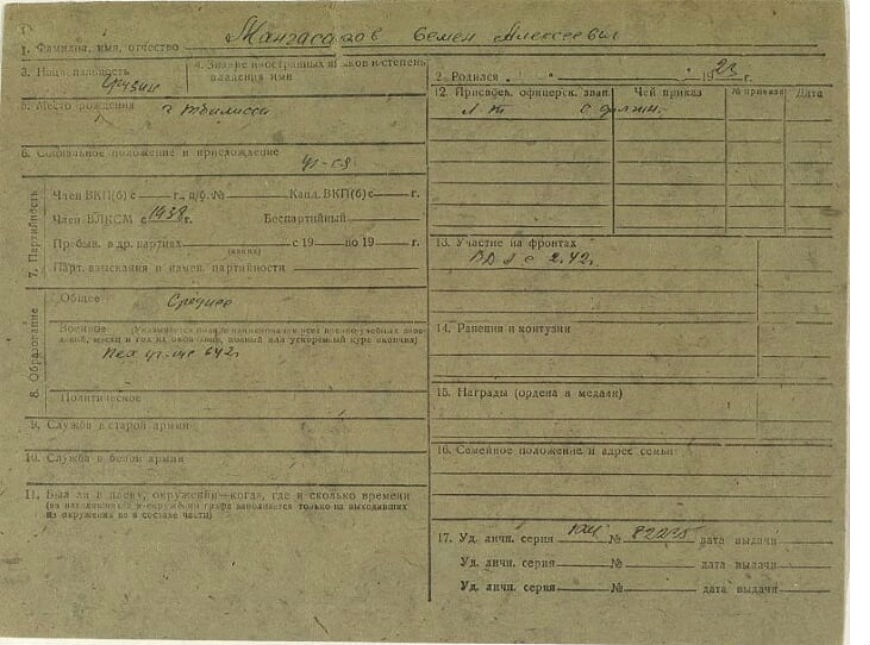 1. Фамилия, имя, отчество Мангасаров Семен Алексеевич
2. Родился " " 1923 г.
3. Национальность грузин
4. Знание иностранных языков и степень владения ими
5. Место рождения г Тбилисси
6. Социальное положение и присхождение
7. Партийность
Член ВКП(б) с г., п/б. № Канд. ВКП(б) с г.
Член ВЛКСМ с 1938 г. Беспартийный
Пребыв. в др. партиях с 19 по 19 г.
(каких)
Парт. взыскания и измен. партийности
8. Образование
Общее Среднее
Военное (Указывается полное наименование всех военно-учебных заведений, месяц и год их окончания, полный или ускоренный курс окончил)
Пех уч-ще 642г
Политическое
9. Служба в старой армии
10. Служба в белой армии
11. Был ли в плену, окружении—когда, где и сколько времени
(на находившихся в окружении графа заполняется только на выходивших
из окружения не в составе части)
12. Присвоен. офицерск. зван. Чей приказ № приказа Дата
13. Участие на фронтах
с 2.42г
14. Ранения и контузии
15. Награды (ордена и медали)
16. Семейное положение и адрес семьи
17. Уд. личн. серия № 82225 дата выдачи
Уд. личн. серия № дата выдачи
Уд. личн. серия № дата выдачи